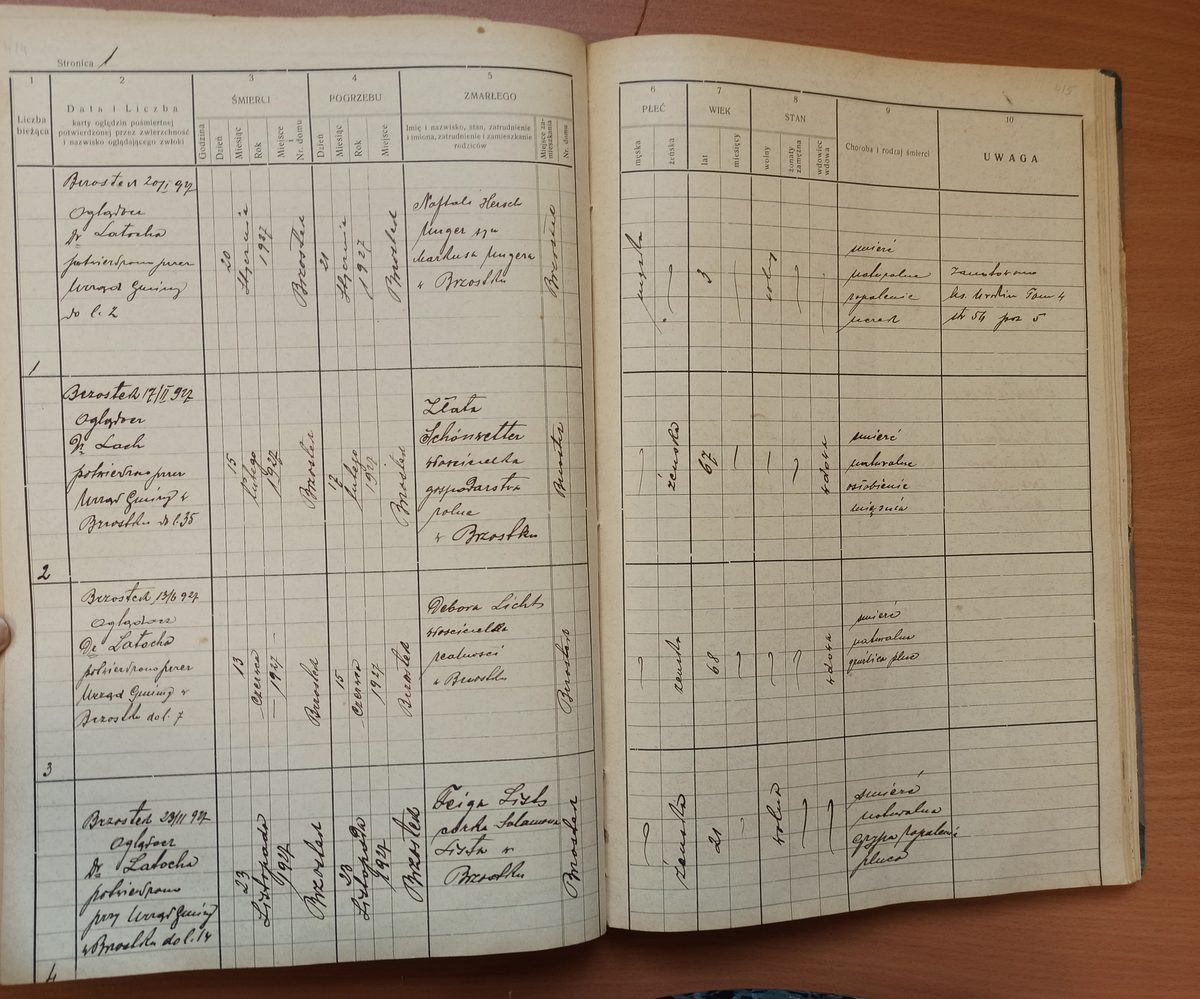 414
Stronica 1
1
2
3
4
5
Liczba
bieżąca
Data i Liczba
karty oględzin pośmiertnej
potwierdzonej przez zwierzchność
i nazwisko oglądającego zwłoki
ŚMIERCI
POGRZEBU
ZMARŁEGO
Godzina
Dzień
Miesiąc
Rok
Miejsce
Nr. domu
Dzień
Miesiąc
Rok
Miejsce
Imię i nazwisko, stan, zatrudnienie
i imiona, zatrudnienie i zamieszkanie
rodziców
Miejsce za-
mieszkania
Nr. domu
6
7
8
9
10
415
PŁEĆ
WIEK
STAN
Choroba i rodzaj śmierci
UWAGA
męska
żeńska
lat
miesięcy
wolny
żonaty
zamężna
wdowiec
wdowa
1
Brzostek 20/I 927
Oglądacz
Dr Latocha
potwierdzono przez
Urząd Gminy
do l. 2
20
Stycznia
1927
Brzostek
21
Stycznia
1927
Brzostek
Naftali Hersch
Unger syn
Markusa Ungera
w Brzostku
Brzostek
męska
3
wolny
śmierć
naturalna
zapalenie
ks. urodzin Tom 4
str 54 poz 5
2
Brzostek 17/II 927
Oglądacz
Dr Lach
potwierdzono przez
Urząd Gminy w
Brzostku do l. 35
15
lutego
1927
Brzostek
17
lutego
1927
Brzostek
Złata
Schönwetter
właścicielka
gospodarstwa
rolne
w Brzostku
Brzostek
żeńska
67
wdowa
śmierć
naturalna
osłabienie
mięśnia
3
Brzostek 13/6 927
Oglądacz
Dr Latocha
potwierdzono przez
Urząd Gminy w
Brzostku do l. 7
13
czerwca
1927
Brzostek
15
czerwca
1927
Brzostek
Debora Lichts
właścicielka
realności
w Brzostku
Brzostek
żeńska
68
wdowa
śmierć
naturalna
gruźlica płuc
4
Brzostek 23/11 927
Oglądacz
Dr Latocha
potwierdzono
przy Urząd Gminy
w Brzostku do l. 14
23
Listopada
1927
Brzostek
23
Listopada
1927
Brzostek
Feiga
córka Salamona
w
Brzostku
Brzostek
żeńska
21
wolna
śmierć
naturalna
grypa zapalenie
płuca